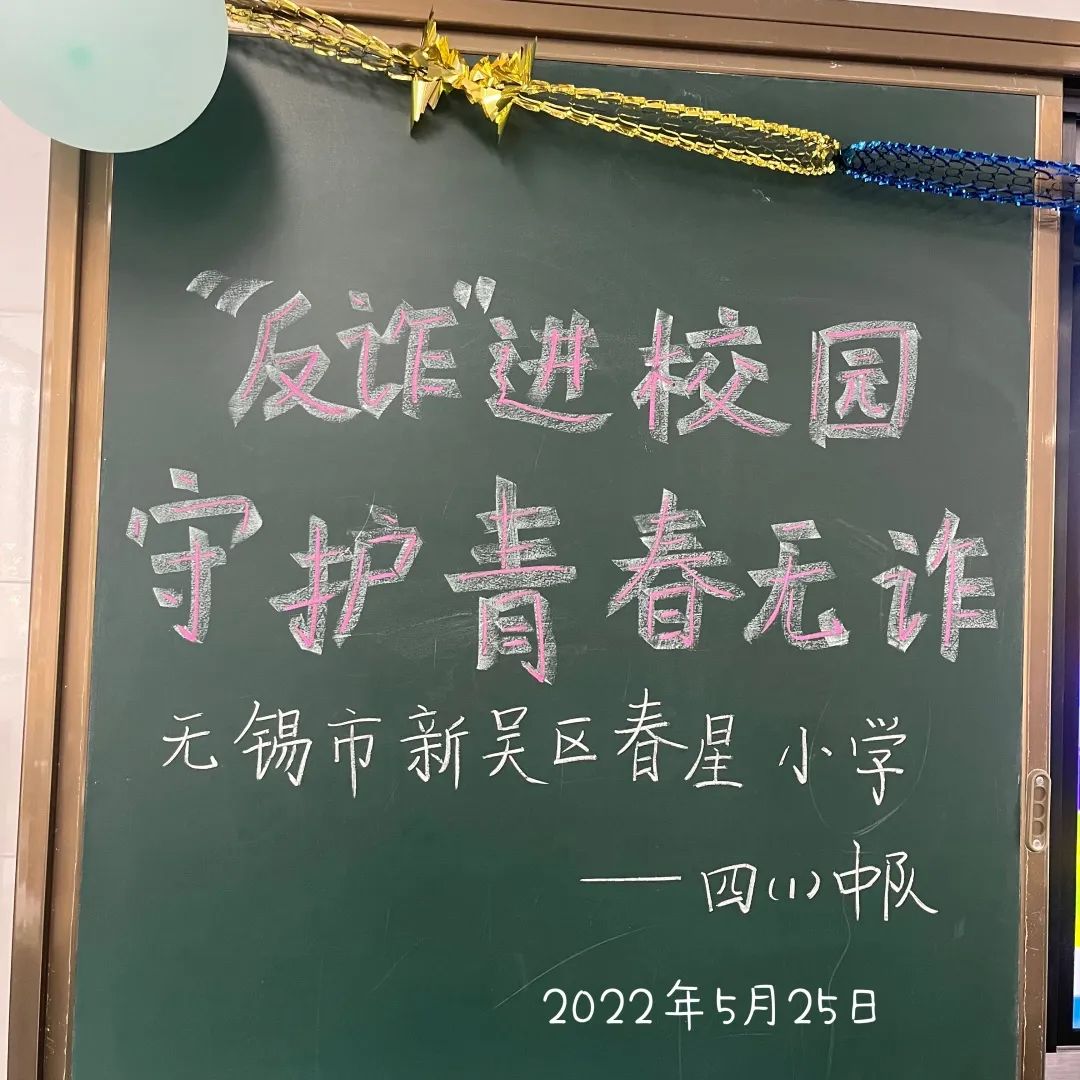 “反诈”进校园
守护青春无诈
无锡市新吴区春星小学
——四(1)中队
2022年5月25日